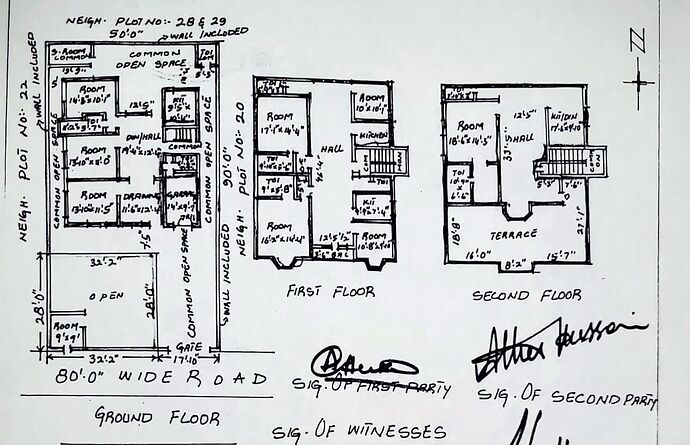 NEIGH. PLOT NO:- 28 & 29
50'.0"
WALL INCLUDED
S.ROOM
COMMON
COMMON
OPEN SPACE
NEIGH. PLOT NO:- 22
WALL INCLUDED
COMMON OPEN SPACE
ROOM
12'.5"
KIT
TOI
ROOM
DRAWING
GARAGE
7'.5"
COMMON OPEN SPACE
90'.0"
WALL INCLUDED
NEIGH. PLOT NO:- 20
COMMON OPEN SPACE
32'.2"
OPEN
28'.0"
28'.0"
ROOM
9'x9'
32'.2"
GATE
17'.10"
80'.0" WIDE ROAD
GROUND FLOOR
ROOM
17'.1"x14'.4"
HALL
ROOM
10'x10'.1"
KITCHEN
COMMON
TOI
TOI
9'x5'.8"
TOI
KIT
ROOM
16'.2"x14'.4"
12'.5½"
BAL
ROOM
FIRST FLOOR
ROOM
18'.6"x14'.3"
12'.5"
HALL
KITDIN
COMMON
TOI
10'.9"
x
6'.6"
5'.3"
7'.6"
18'.8"
TERRACE
27'.1"
16'.0"
8'.2"
15'.7"
SECOND FLOOR
SIG. OF FIRST PARTY
Athar Hussain
SIG. OF SECOND PARTY
SIG. OF WITNESSES